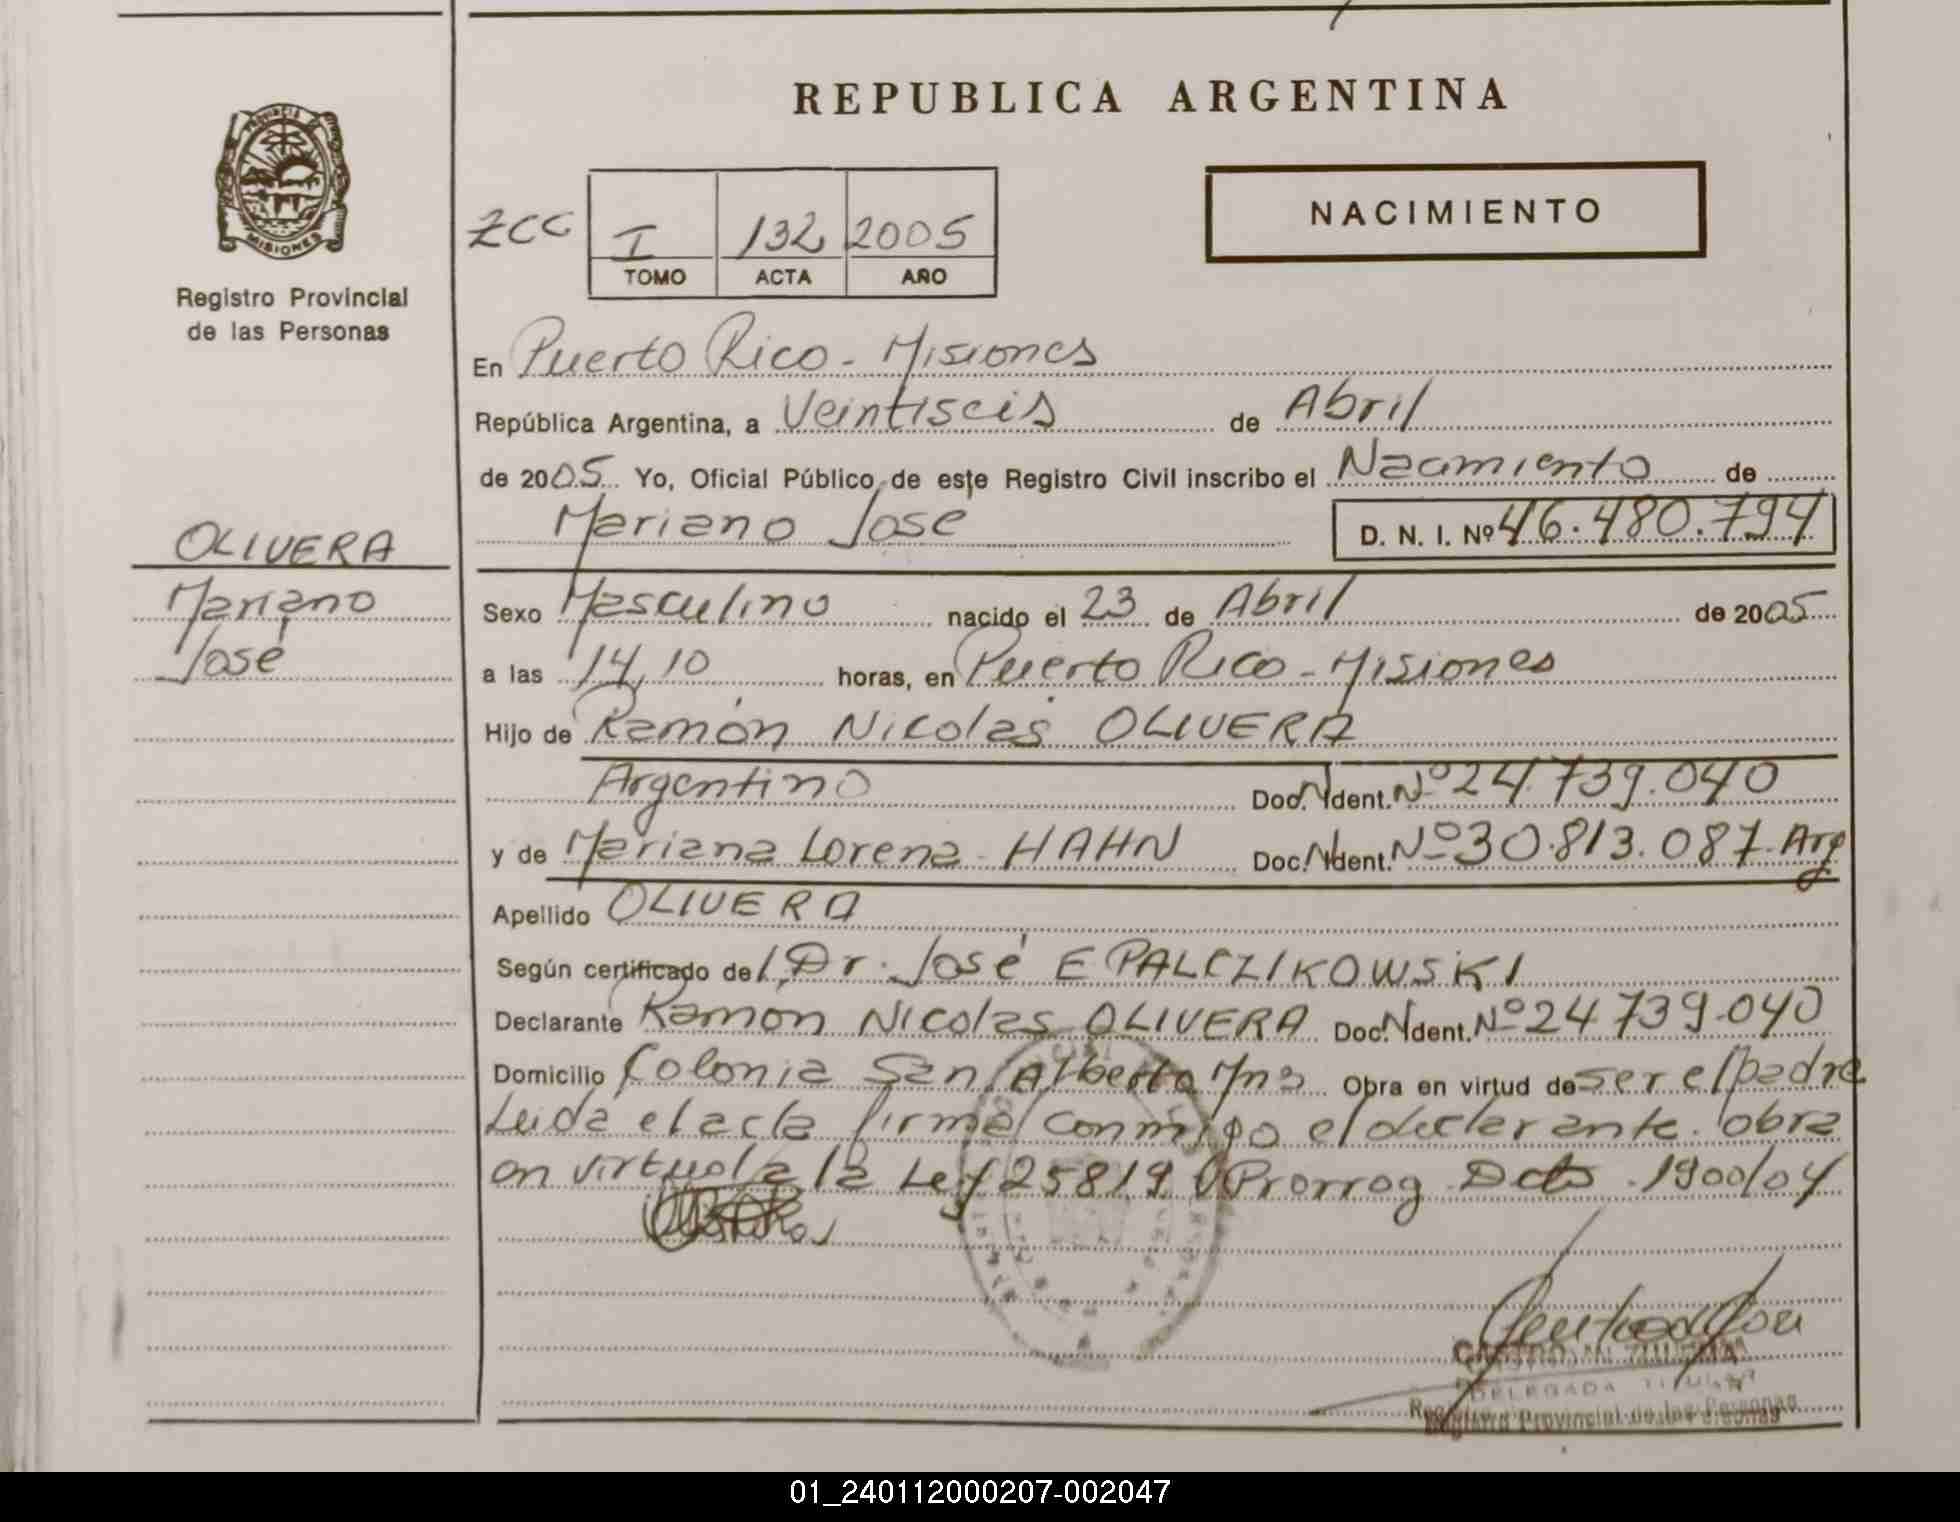 REPUBLICA ARGENTINA
PROVINCIA DE
MISIONES
Registro Provincial
de las Personas
ZCC I 132 2005
TOMO ACTA AÑO
NACIMIENTO
En Puerto Rico - Misiones
República Argentina, a Veintiseis de Abril
de 2005. Yo, Oficial Público de este Registro Civil inscribo el Nacimiento de
Mariano José D. N. I. Nº 46.480.794
OLIVERA
Mariano
José
Sexo Masculino nacido el 23 de Abril de 2005
a las 14,10 horas, en Puerto Rico - Misiones
Hijo de Ramón Nicolas OLIVERA
Argentino Doc. Ident. Nº 24.739.040
y de Mariana Lorena HAHN Doc. Ident. Nº 30.813.087. Arg
Apellido OLIVERA
Según certificado del Dr. José E PALCZIKOWSKI
Declarante Ramón Nicolas OLIVERA Doc. Ident. Nº 24 739.040
Domicilio Colonia San Alberto Mns Obra en virtud de ser el padre
Leida el acta firma conmigo el declarante. obra
en virtud a la Ley 25819 Prorrog Dcto. 1900/04
DELEGADA TITULAR
Registro Provincial de las Personas
01_240112000207-002047